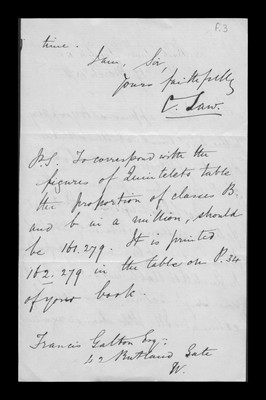 f.3
time.
I am, Sir,
Yours faithfully
C. Law.
P.S. To correspond with the
figures of Quintelets table
the proportion of classes B.
and b in a million, should
be 161.279. It is printed
162.279 in the table on P. 34
of your book.
Francis Galton Esq:
42 Rutland Gate
W.